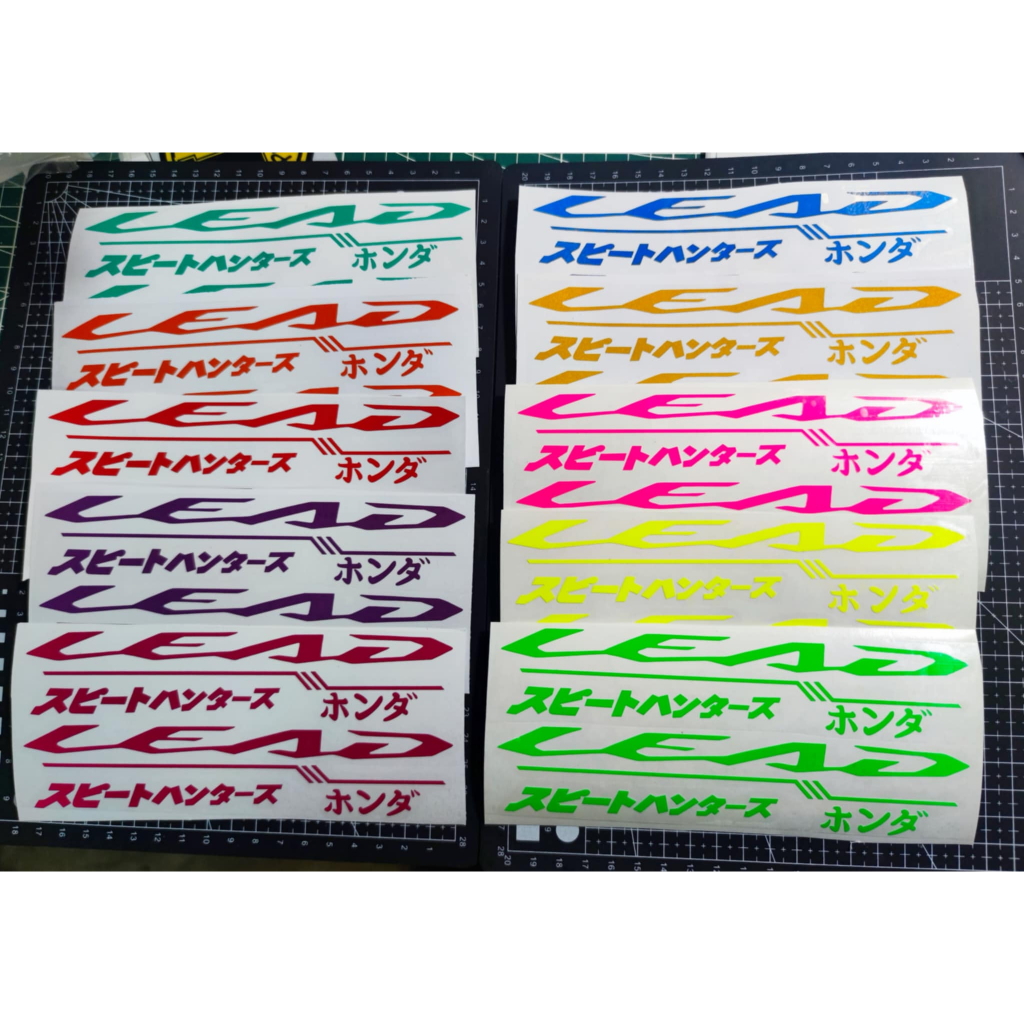 LEAD
スピートハンターズ ホンダ
LEAD
スピートハンターズ ホンダ
LEAD
スピートハンターズ ホンダ
LEAD
スピートハンターズ ホンダ
LEAD
LEAD
スピートハンターズ ホンダ
LEAD
スピートハンターズ ホンダ
LEAD
スピートハンターズ ホンダ
LEAD
スピートハンターズ ホンダ
LEAD
LEAD
スピートハンターズ ホンダ
LEAD
LEAD
スピートハンターズ ホンダ
LEAD
スピートハンターズ ホンダ
LEAD
スピートハンターズ ホンダ